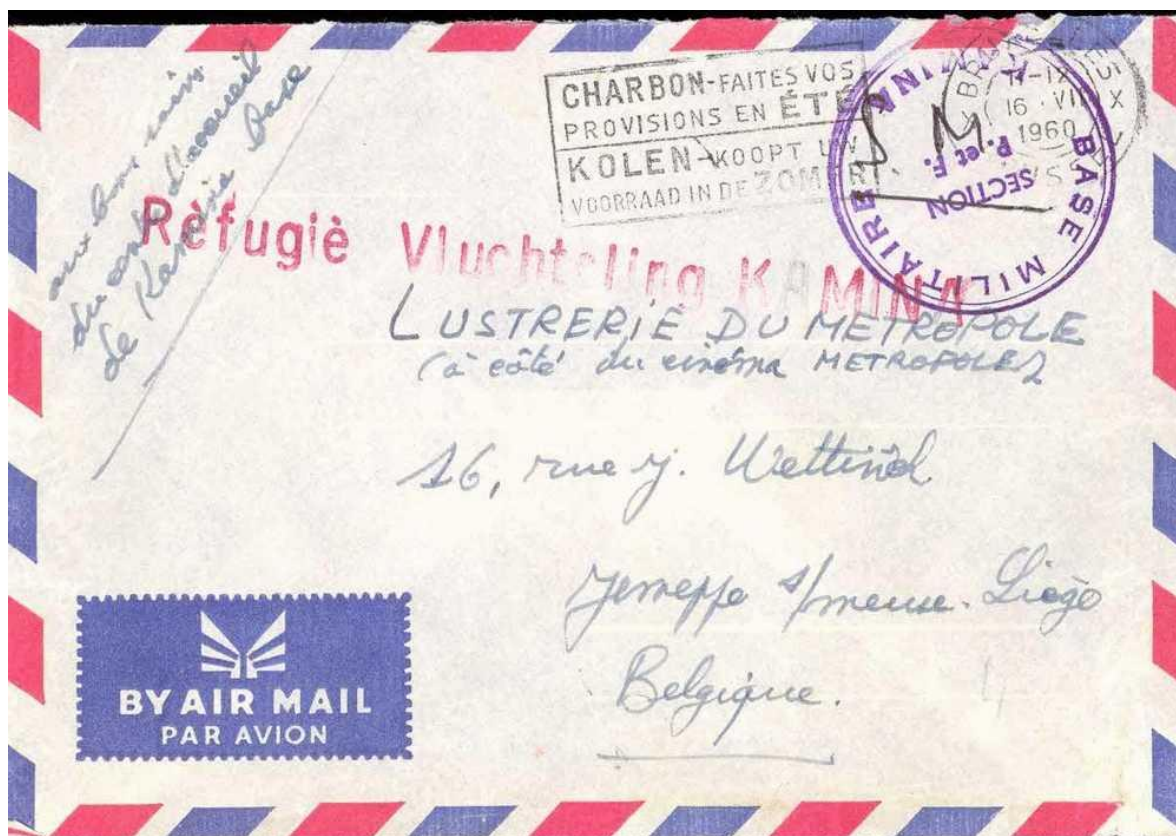 aux bons soins
du centre d'accueil
de Kamina Base
CHARBON-FAITES VOS
PROVISIONS EN ÉTÉ
KOLEN-KOOPT UW
VOORRAAD IN DE ZOMER
16 VII
1960
BASE MILITAIRE KAMINA
SECTION
P. et F.
S.M.
Rèfugiè Vluchteling KAMINA
LUSTRERIE DU METROPOLE
(à côté du cinéma METROPOLE)
16, rue J. Wettinel
Jemeppe s/meuse. Liège
Belgique.
BY AIR MAIL
PAR AVION